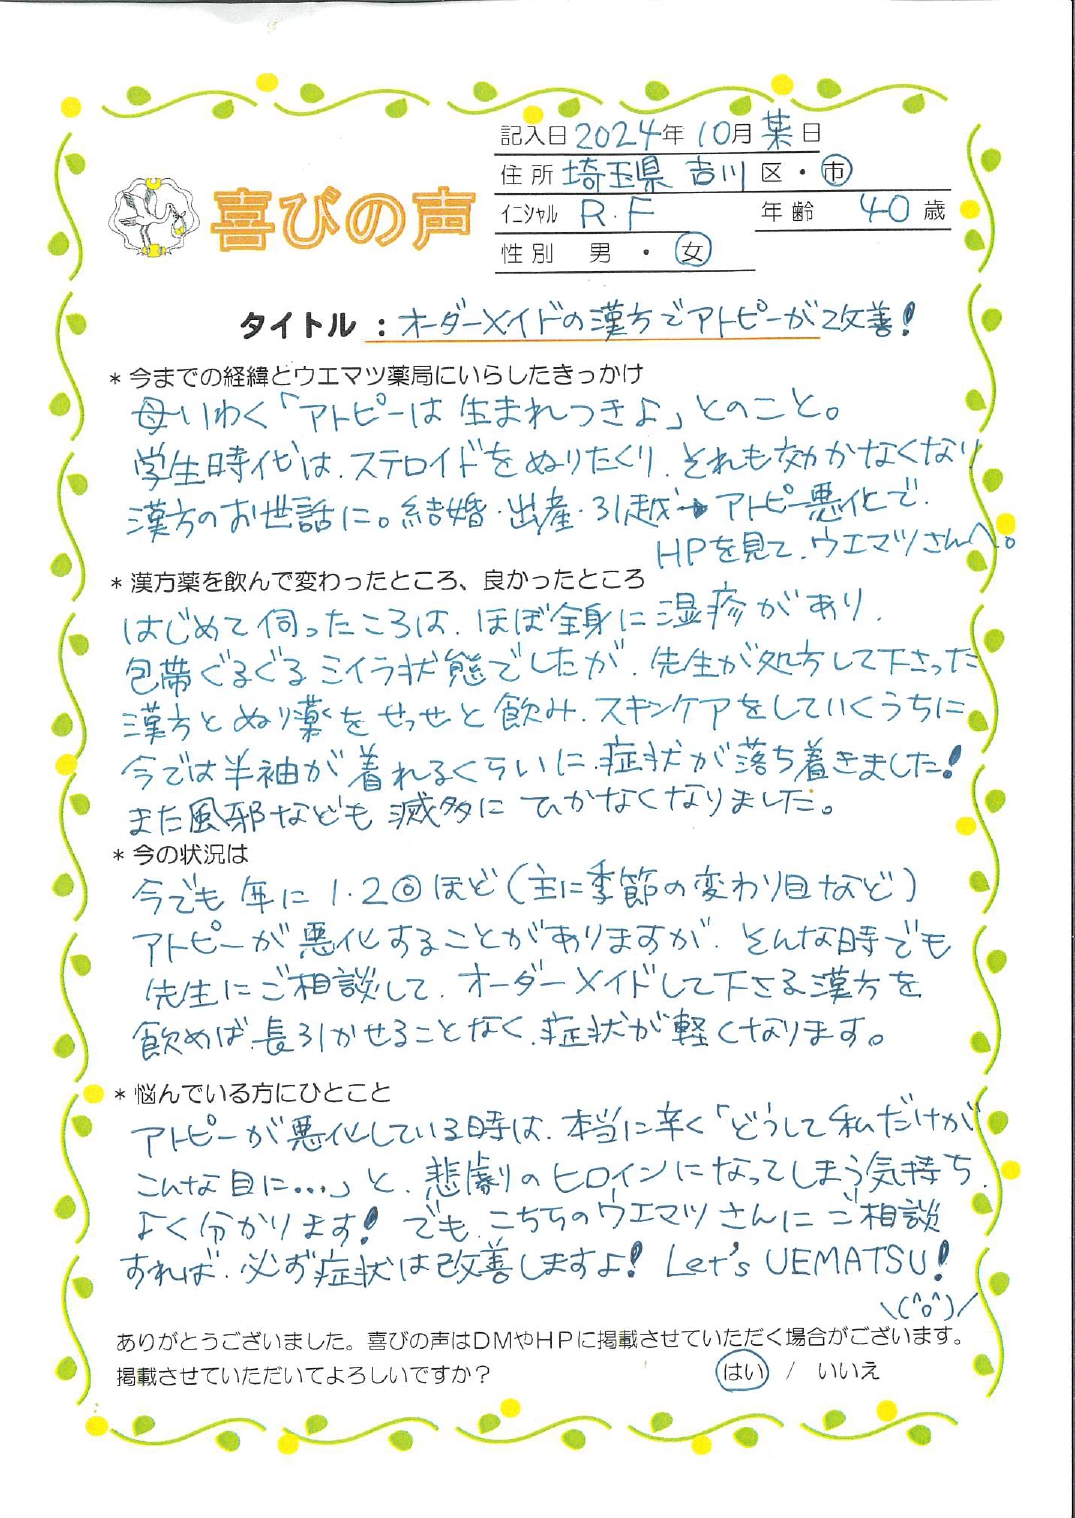 記入日 2024年 10月 某日
住所 埼玉県 吉川 区・市
喜びの声
イニシャル R.F 年齢 40歳
性別 男・女
タイトル：オーダーメイドの漢方でアトピーが改善！
＊今までの経緯とウエマツ薬局にいらしたきっかけ
母いわく「アトピーは 生まれつきよ」とのこと。
学生時代は、ステロイドをぬりたくり、それも効かなくなり
漢方のお世話に。結婚・出産・引越→アトピー悪化で、
HPを見て、ウエマツさんへ。
＊漢方薬を飲んで変わったところ、良かったところ
はじめて伺ったころは、ほぼ全身に湿疹があり、
包帯ぐるぐるミイラ状態でしたが、先生が処方して下さった
漢方とぬり薬をせっせと飲み、スキンケアをしていくうちに
今では半袖が着れるくらいに、症状が落ち着きました！
また風邪なども滅多にひかなくなりました。
＊今の状況は
今でも年に1・2回ほど（主に季節の変わり目など）
アトピーが悪化することがありますが、そんな時でも
先生にご相談して、オーダーメイドして下さる漢方を
飲めば、長引かせることなく、症状が軽くなります。
＊悩んでいる方にひとこと
アトピーが悪化している時は、本当に辛く「どうして私だけが
こんな目に…」と、悲劇のヒロインになってしまう気持ち、
よく分かります！でも、こちらのウエマツさんにご相談
すれば、必ず症状は改善しますよ！ Let's UEMATSU！
＼(^o^)／
ありがとうございました。喜びの声はDMやHPに掲載させていただく場合がございます。
掲載させていただいてよろしいですか？ はい / いいえ